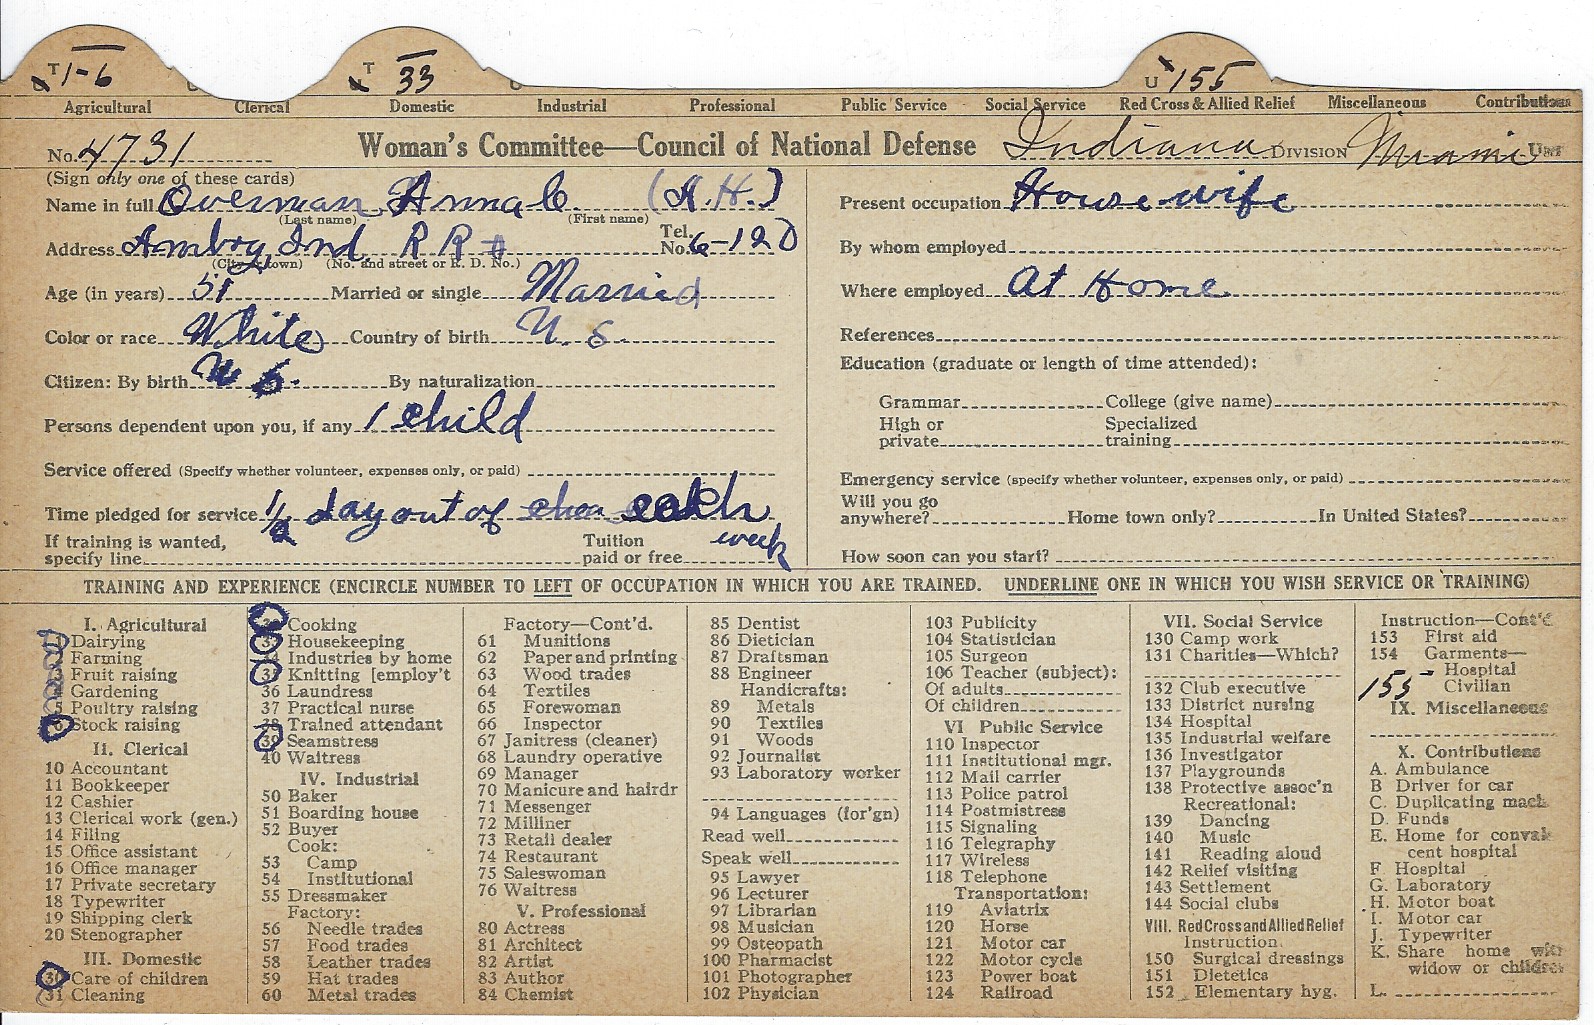 T 1-6 T 33 U 155
Agricultural Clerical Domestic Industrial Professional Public Service Social Service Red Cross & Allied Relief Miscellaneous Contributions
No. 4731 Woman's Committee—Council of National Defense Indiana DIVISION Miami Unit
(Sign only one of these cards)
Name in full Overman Anna C (A.H.)
(Last name) (First name)
Address Amboy, Ind. R R # Tel. No. 6-12D
(City or town) (No. and street or R. D. No.)
Age (in years) 51 Married or single Married
Color or race White Country of birth U. S.
Citizen: By birth U S. By naturalization
Persons dependent upon you, if any 1 child
Service offered (Specify whether volunteer, expenses only, or paid)
Time pledged for service 1/2 day out of each
week
If training is wanted, specify line Tuition paid or free
Present occupation House wife
By whom employed
Where employed At Home
References
Education (graduate or length of time attended):
Grammar College (give name)
High or private Specialized training
Emergency service (specify whether volunteer, expenses only, or paid)
Will you go anywhere? Home town only? In United States?
How soon can you start?
TRAINING AND EXPERIENCE (ENCIRCLE NUMBER TO LEFT OF OCCUPATION IN WHICH YOU ARE TRAINED. UNDERLINE ONE IN WHICH YOU WISH SERVICE OR TRAINING)
I. Agricultural
1 Dairying
2 Farming
3 Fruit raising
4 Gardening
5 Poultry raising
6 Stock raising
II. Clerical
10 Accountant
11 Bookkeeper
12 Cashier
13 Clerical work (gen.)
14 Filing
15 Office assistant
16 Office manager
17 Private secretary
18 Typewriter
19 Shipping clerk
20 Stenographer
III. Domestic
30 Care of children
31 Cleaning
Cooking
33 Housekeeping
34 Industries by home
35 Knitting [employ't
36 Laundress
37 Practical nurse
38 Trained attendant
39 Seamstress
40 Waitress
IV. Industrial
50 Baker
51 Boarding house
52 Buyer
Cook:
53 Camp
54 Institutional
55 Dressmaker
Factory:
56 Needle trades
57 Food trades
58 Leather trades
59 Hat trades
60 Metal trades
Factory—Cont'd.
61 Munitions
62 Paper and printing
63 Wood trades
64 Textiles
65 Forewoman
66 Inspector
67 Janitress (cleaner)
68 Laundry operative
69 Manager
70 Manicure and hairdr
71 Messenger
72 Milliner
73 Retail dealer
74 Restaurant
75 Saleswoman
76 Waitress
V. Professional
80 Actress
81 Architect
82 Artist
83 Author
84 Chemist
85 Dentist
86 Dietician
87 Draftsman
88 Engineer
Handicrafts:
89 Metals
90 Textiles
91 Woods
92 Journalist
93 Laboratory worker
94 Languages (for'gn)
Read well
Speak well
95 Lawyer
96 Lecturer
97 Librarian
98 Musician
99 Osteopath
100 Pharmacist
101 Photographer
102 Physician
103 Publicity
104 Statistician
105 Surgeon
106 Teacher (subject):
Of adults
Of children
VI Public Service
110 Inspector
111 Institutional mgr.
112 Mail carrier
113 Police patrol
114 Postmistress
115 Signaling
116 Telegraphy
117 Wireless
118 Telephone
Transportation:
119 Aviatrix
120 Horse
121 Motor car
122 Motor cycle
123 Power boat
124 Railroad
VII. Social Service
130 Camp work
131 Charities—Which?
132 Club executive
133 District nursing
134 Hospital
135 Industrial welfare
136 Investigator
137 Playgrounds
138 Protective assoc'n
Recreational:
139 Dancing
140 Music
141 Reading aloud
142 Relief visiting
143 Settlement
144 Social clubs
VIII. Red Cross and Allied Relief
Instruction
150 Surgical dressings
151 Dietetics
152 Elementary hyg.
Instruction—Cont'd.
153 First aid
154 Garments—
Hospital
155 Civilian
IX. Miscellaneous
X. Contributions
A. Ambulance
B Driver for car
C. Duplicating mach.
D. Funds
E. Home for convales
cent hospital
F Hospital
G. Laboratory
H. Motor boat
I. Motor car
J. Typewriter
K. Share home with
widow or children
L.